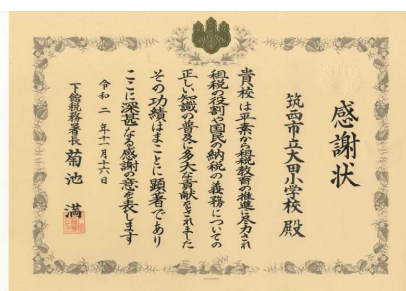 感謝状
筑西市立大田小学校 殿
貴校は平素から租税教育の推進に尽力され
租税の役割や国民の納税の義務についての
正しい知識の普及に多大な貢献をされました
その功績はまことに顕著であり
ここに深甚なる感謝の意を表します
令和二年十一月十六日
下館税務署長 菊池 満